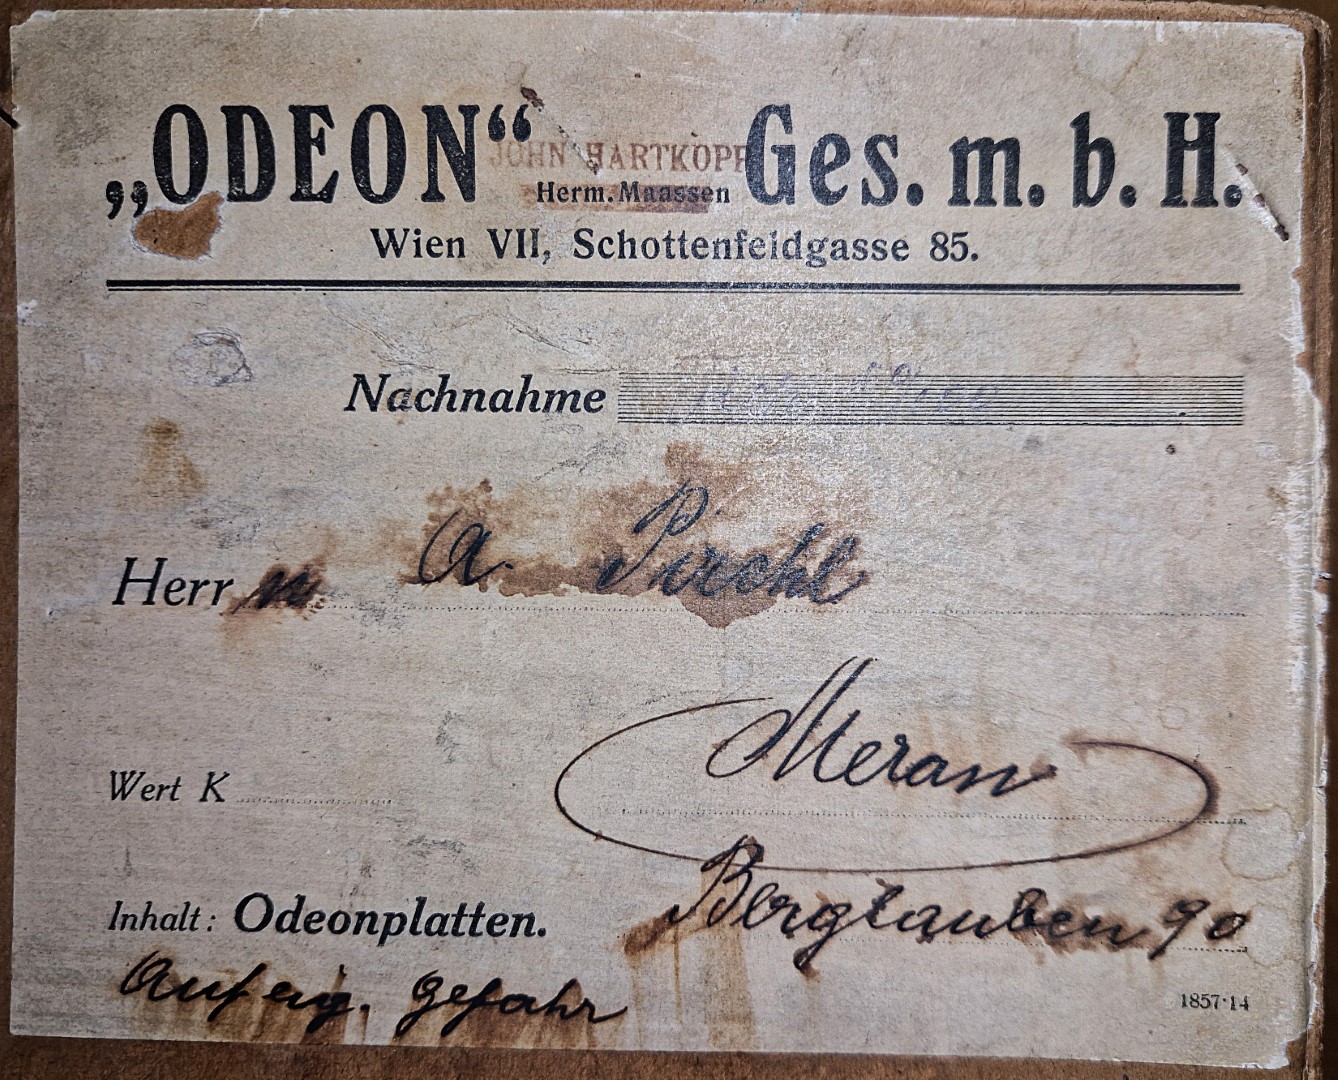 „ODEON“ JOHN HARTKOPF Ges. m. b. H.
Herm. Maassen
Wien VII, Schottenfeldgasse 85.
Nachnahme
Herr n A. Pirchl
Meran
Wert K
Berglauben 90
Inhalt: Odeonplatten.
Auf eig. Gefahr
1857·14